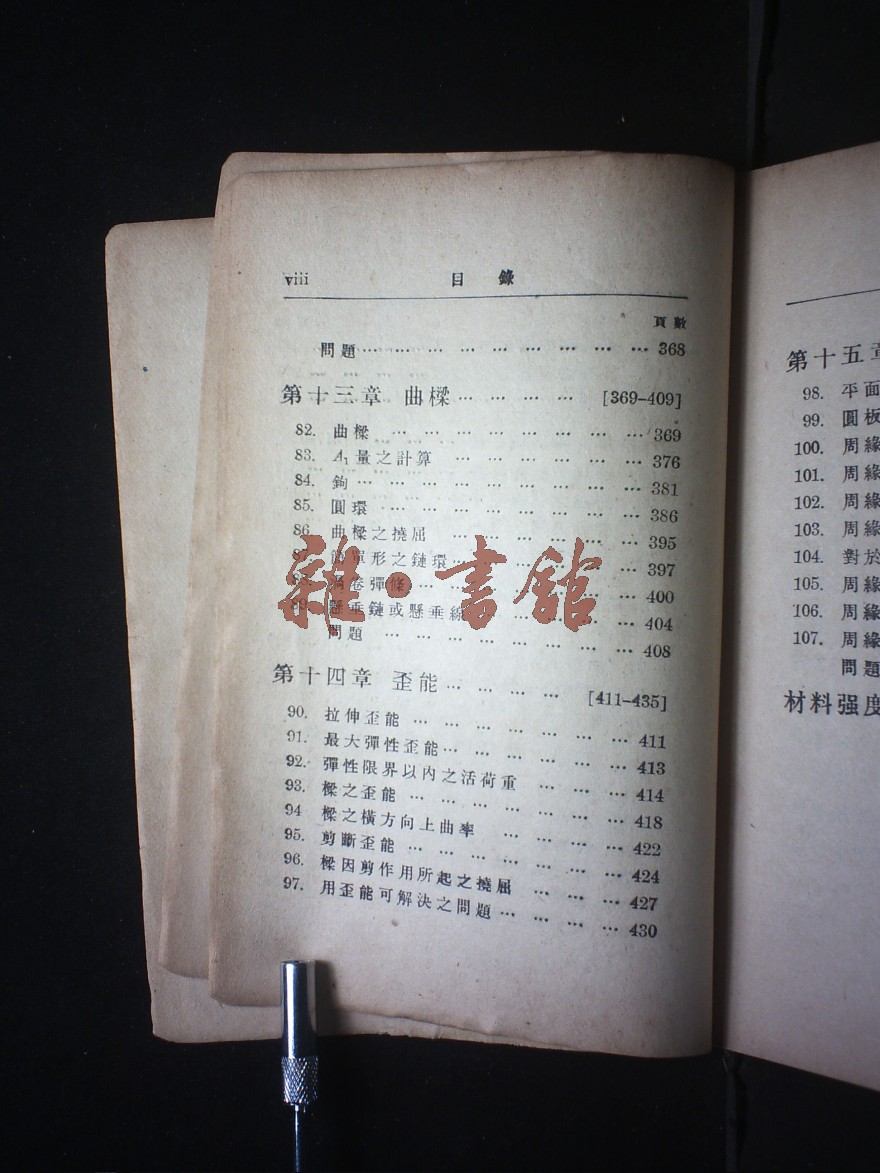 viii 目 錄
頁數
問題… … … … … … … … … 368
第十三章 曲樑… … … … [369–409]
82. 曲樑 … … … … … … … … 369
83. A₁量之計算 … … … … … … 376
84. 鉤… … … … … … … … … 381
85. 圓環 … … … … … … … … 386
86. 曲樑之撓屈 … … … … … … 395
87. 單形之鏈環… … … … … … 397
卷彈條… … … … … … 400
懸垂鏈或懸垂線 … … … … 404
問題 … … … … … … … … 408
第十四章 歪能… … … … [411–435]
90. 拉伸歪能 … … … … … … … 411
91. 最大彈性歪能… … … … … … 413
92. 彈性限界以內之活荷重 … … … 414
93. 樑之歪能 … … … … … … … 418
94 樑之橫方向上曲率 … … … … 422
95. 剪斷歪能 … … … … … … … 424
96. 樑因剪作用所起之撓屈 … … … 427
97. 用歪能可解決之問題… … … … 430
第十五章
98. 平面
99. 圓板
100. 周緣
101. 周緣
102. 周緣
103. 周緣
104. 對於
105. 周緣
106. 周緣
107. 周緣
問題
材料强度
雜·書館